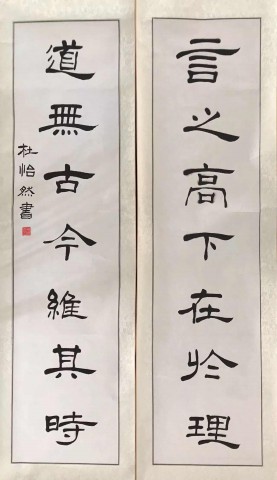 言之高下在於理
道無古今維其時
杜怡然書